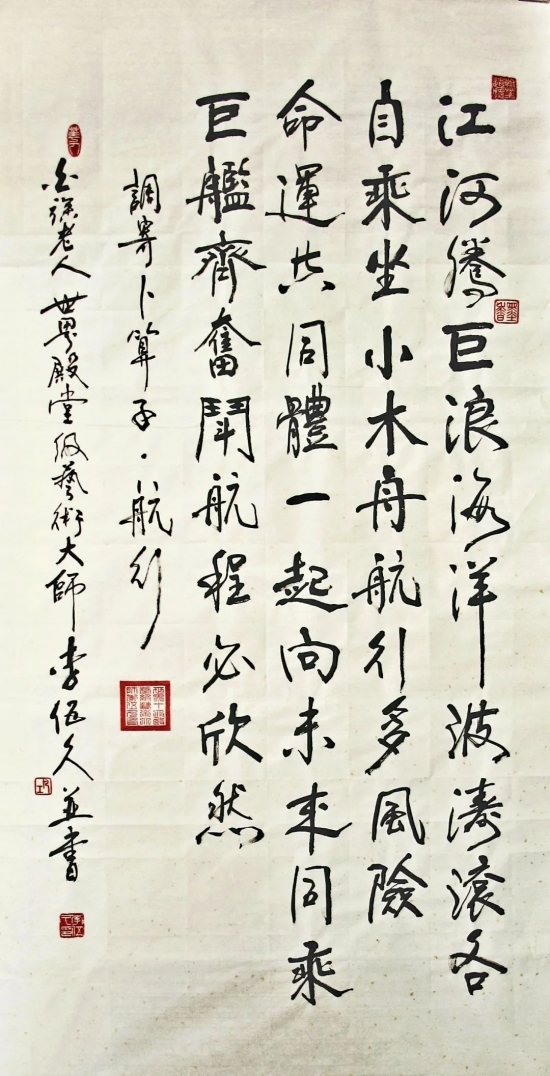 江河騰巨浪海洋波濤滾各
自乘坐小木舟航行多風險
命運共同體一起向未來同乘
巨艦齊奮鬥航程必欣然
調寄卜算子·航行
老人世界殿堂級藝術大師李伍久並書